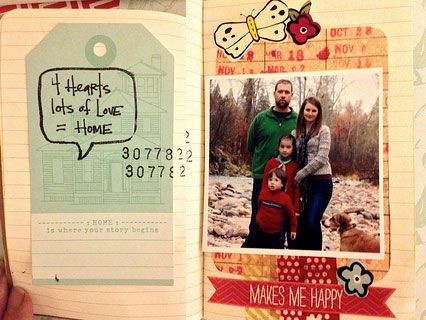 4 Hearts
lots of Love
= Home
3077822
307782
: HOME :
is where your story begins
OCT 28
MAR 18
NOV 1
NOV
MAKES ME HAPPY